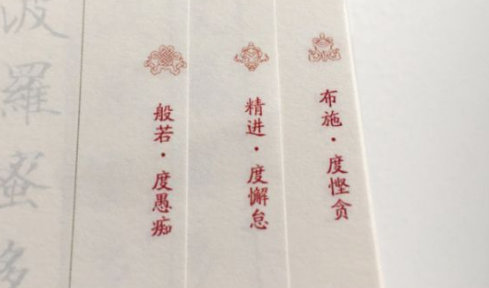 布施·度悭贪
精进·度懈怠
般若·度愚痴
波羅蜜多